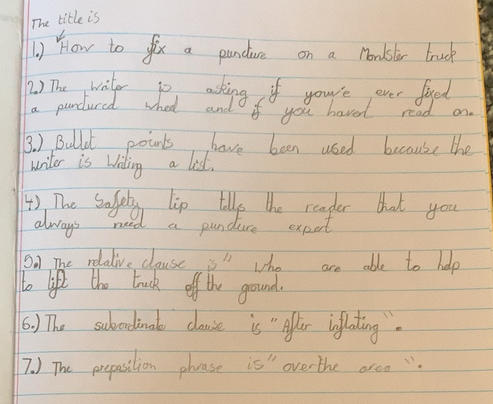 The title is
1.) How to fix a puncture on a Monster truck
2.) The writer is asking if youve ever fixed
a punctured wheel and if you havent read on.
3.) Bullet points have been used because the
writer is writing a list.
4) The Safety tip tells the reader that you
always need a puncture expert
5.) The relative clause is " who are able to help
to lift the truck off the ground.
6.) The subordinate clause is "After inflating".
7.) The preposition phrase is "over the area".